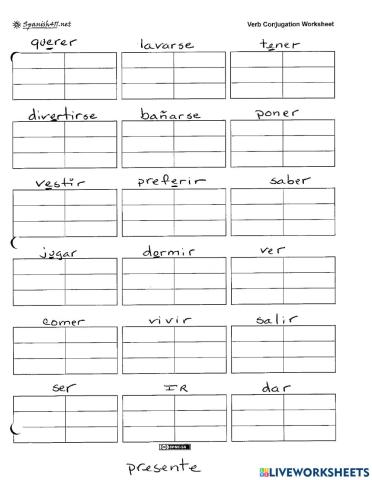 Spanish411.net Verb Conjugation Worksheet
querer lavarse tener
divertirse bañarse poner
vestir preferir saber
jugar dormir ver
comer vivir salir
ser IR dar
presente
LIVEWORKSHEETS